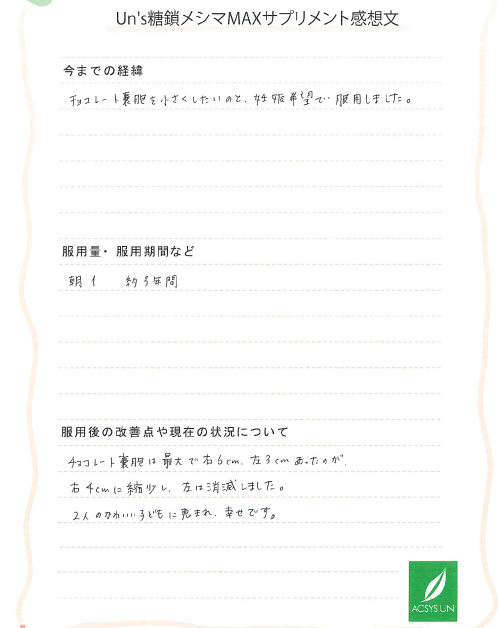 Un's糖鎖メシマMAXサプリメント感想文
今までの経緯
チョコレート嚢胞を小さくしたいのと、妊娠希望で服用しました。
服用量・服用期間など
朝1 約3年間
服用後の改善点や現在の状況について
チョコレート嚢胞は最大で右6cm、左3cmあったのが、
右4cmに縮少し、左は消滅しました。
2人のかわいい子どもに恵まれ、幸せです。
ACSYS UN